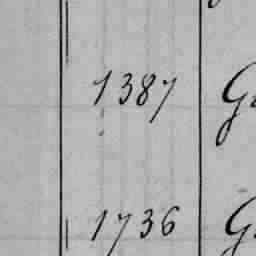 1387
1736